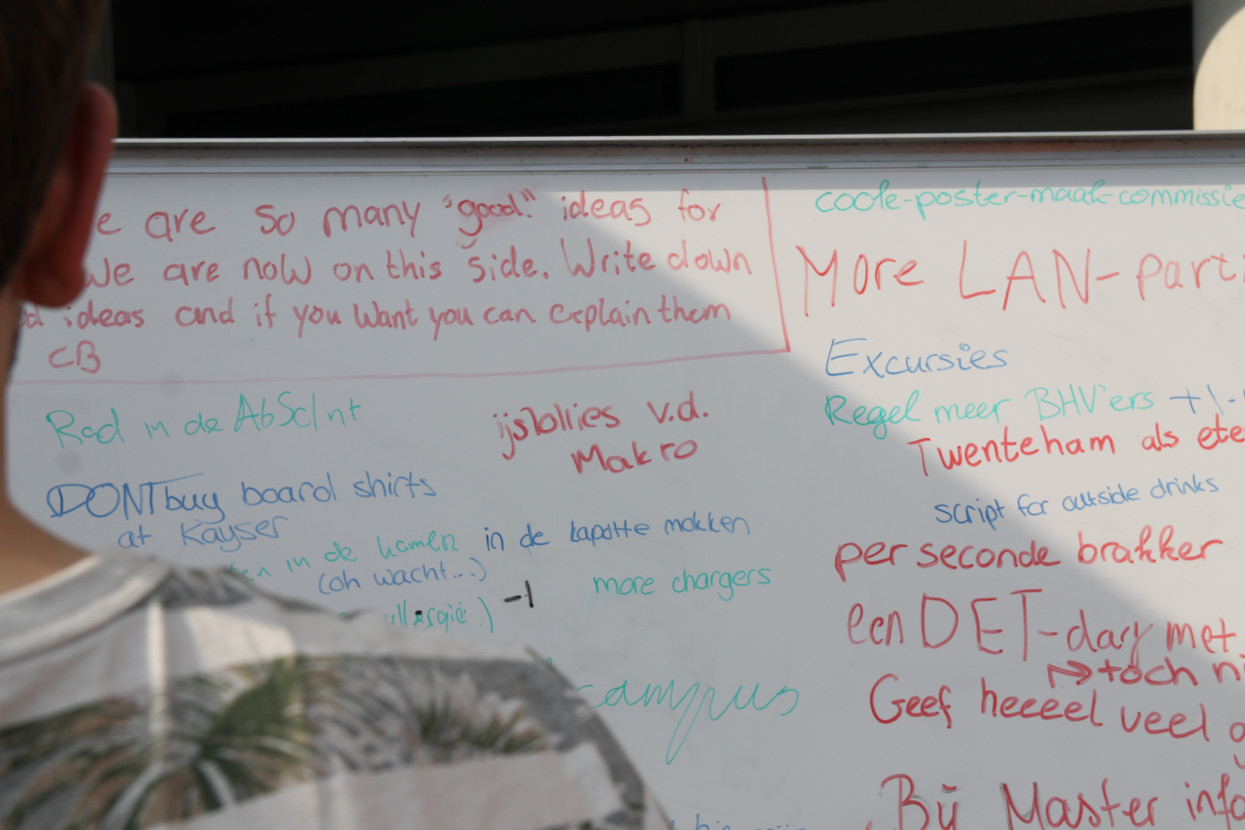 are so many "good" ideas for
We are now on this side. Write down
ideas and if you want you can explain them
CB
Rad in de AbScInt
ijslollies v.d.
Makro
DON'T buy board shirts
at Kayser
in de kamer
(oh wacht...)
in de kapotte mokken
-1
more chargers
campus
coole-poster-maak-commissie
More LAN-part
Excursies
Regel meer BHV'ers +1
Twenteham als ete
script for outside drinks
per seconde brakker
een DET-day met
→ toch ni
Geef heeeel veel
Bij Master info